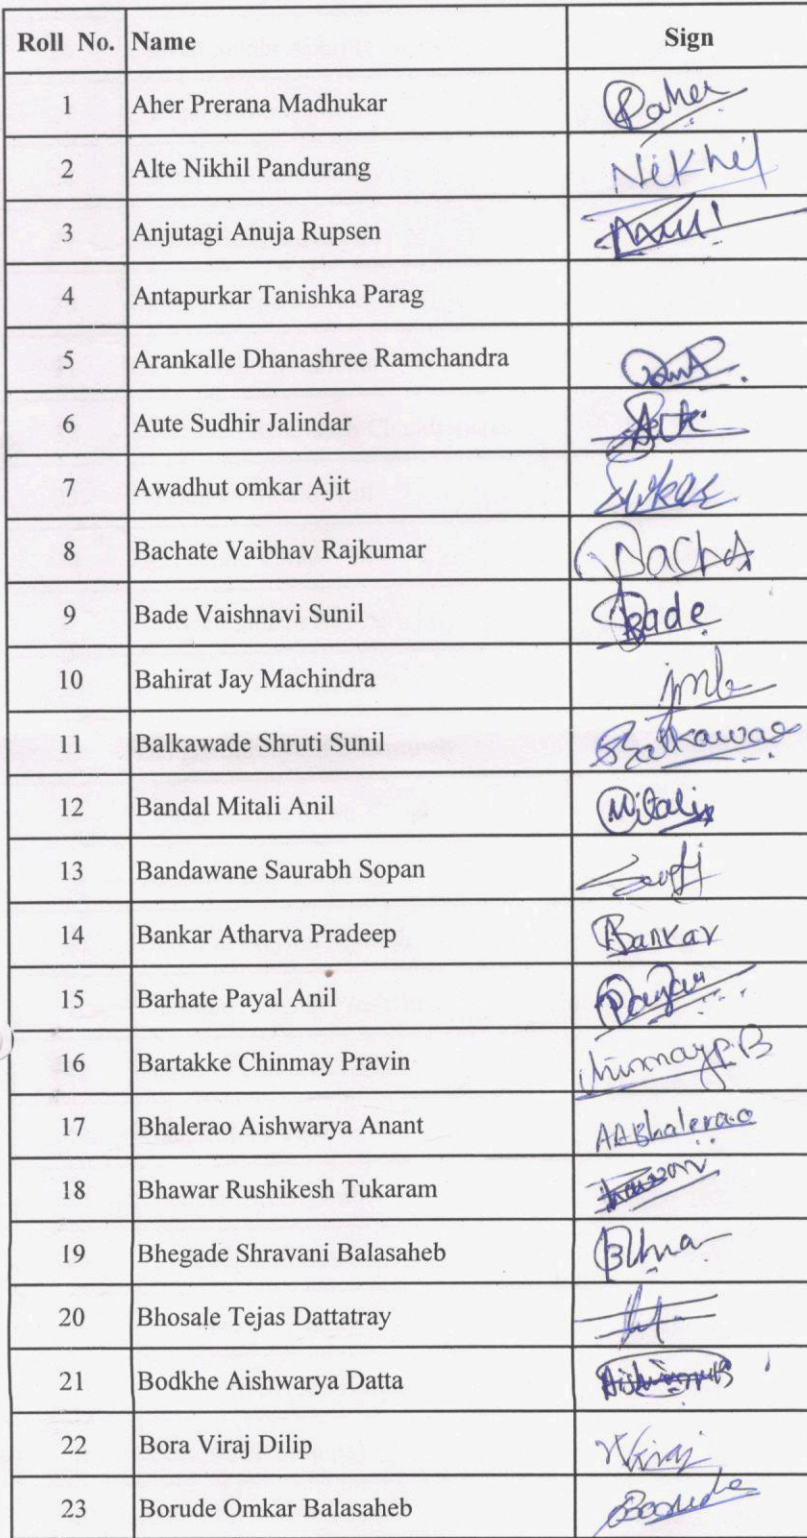 Roll No. Name Sign
1 Aher Prerana Madhukar Paher
2 Alte Nikhil Pandurang Nikhil
3 Anjutagi Anuja Rupsen
4 Antapurkar Tanishka Parag
5 Arankalle Dhanashree Ramchandra
6 Aute Sudhir Jalindar
7 Awadhut omkar Ajit
8 Bachate Vaibhav Rajkumar
9 Bade Vaishnavi Sunil Bade
10 Bahirat Jay Machindra jmb
11 Balkawade Shruti Sunil
12 Bandal Mitali Anil Mitali
13 Bandawane Saurabh Sopan
14 Bankar Atharva Pradeep Bankar
15 Barhate Payal Anil
16 Bartakke Chinmay Pravin ChinmayP.B
17 Bhalerao Aishwarya Anant AABhalerao
18 Bhawar Rushikesh Tukaram
19 Bhegade Shravani Balasaheb
20 Bhosale Tejas Dattatray
21 Bodkhe Aishwarya Datta
22 Bora Viraj Dilip Viraj
23 Borude Omkar Balasaheb Borude